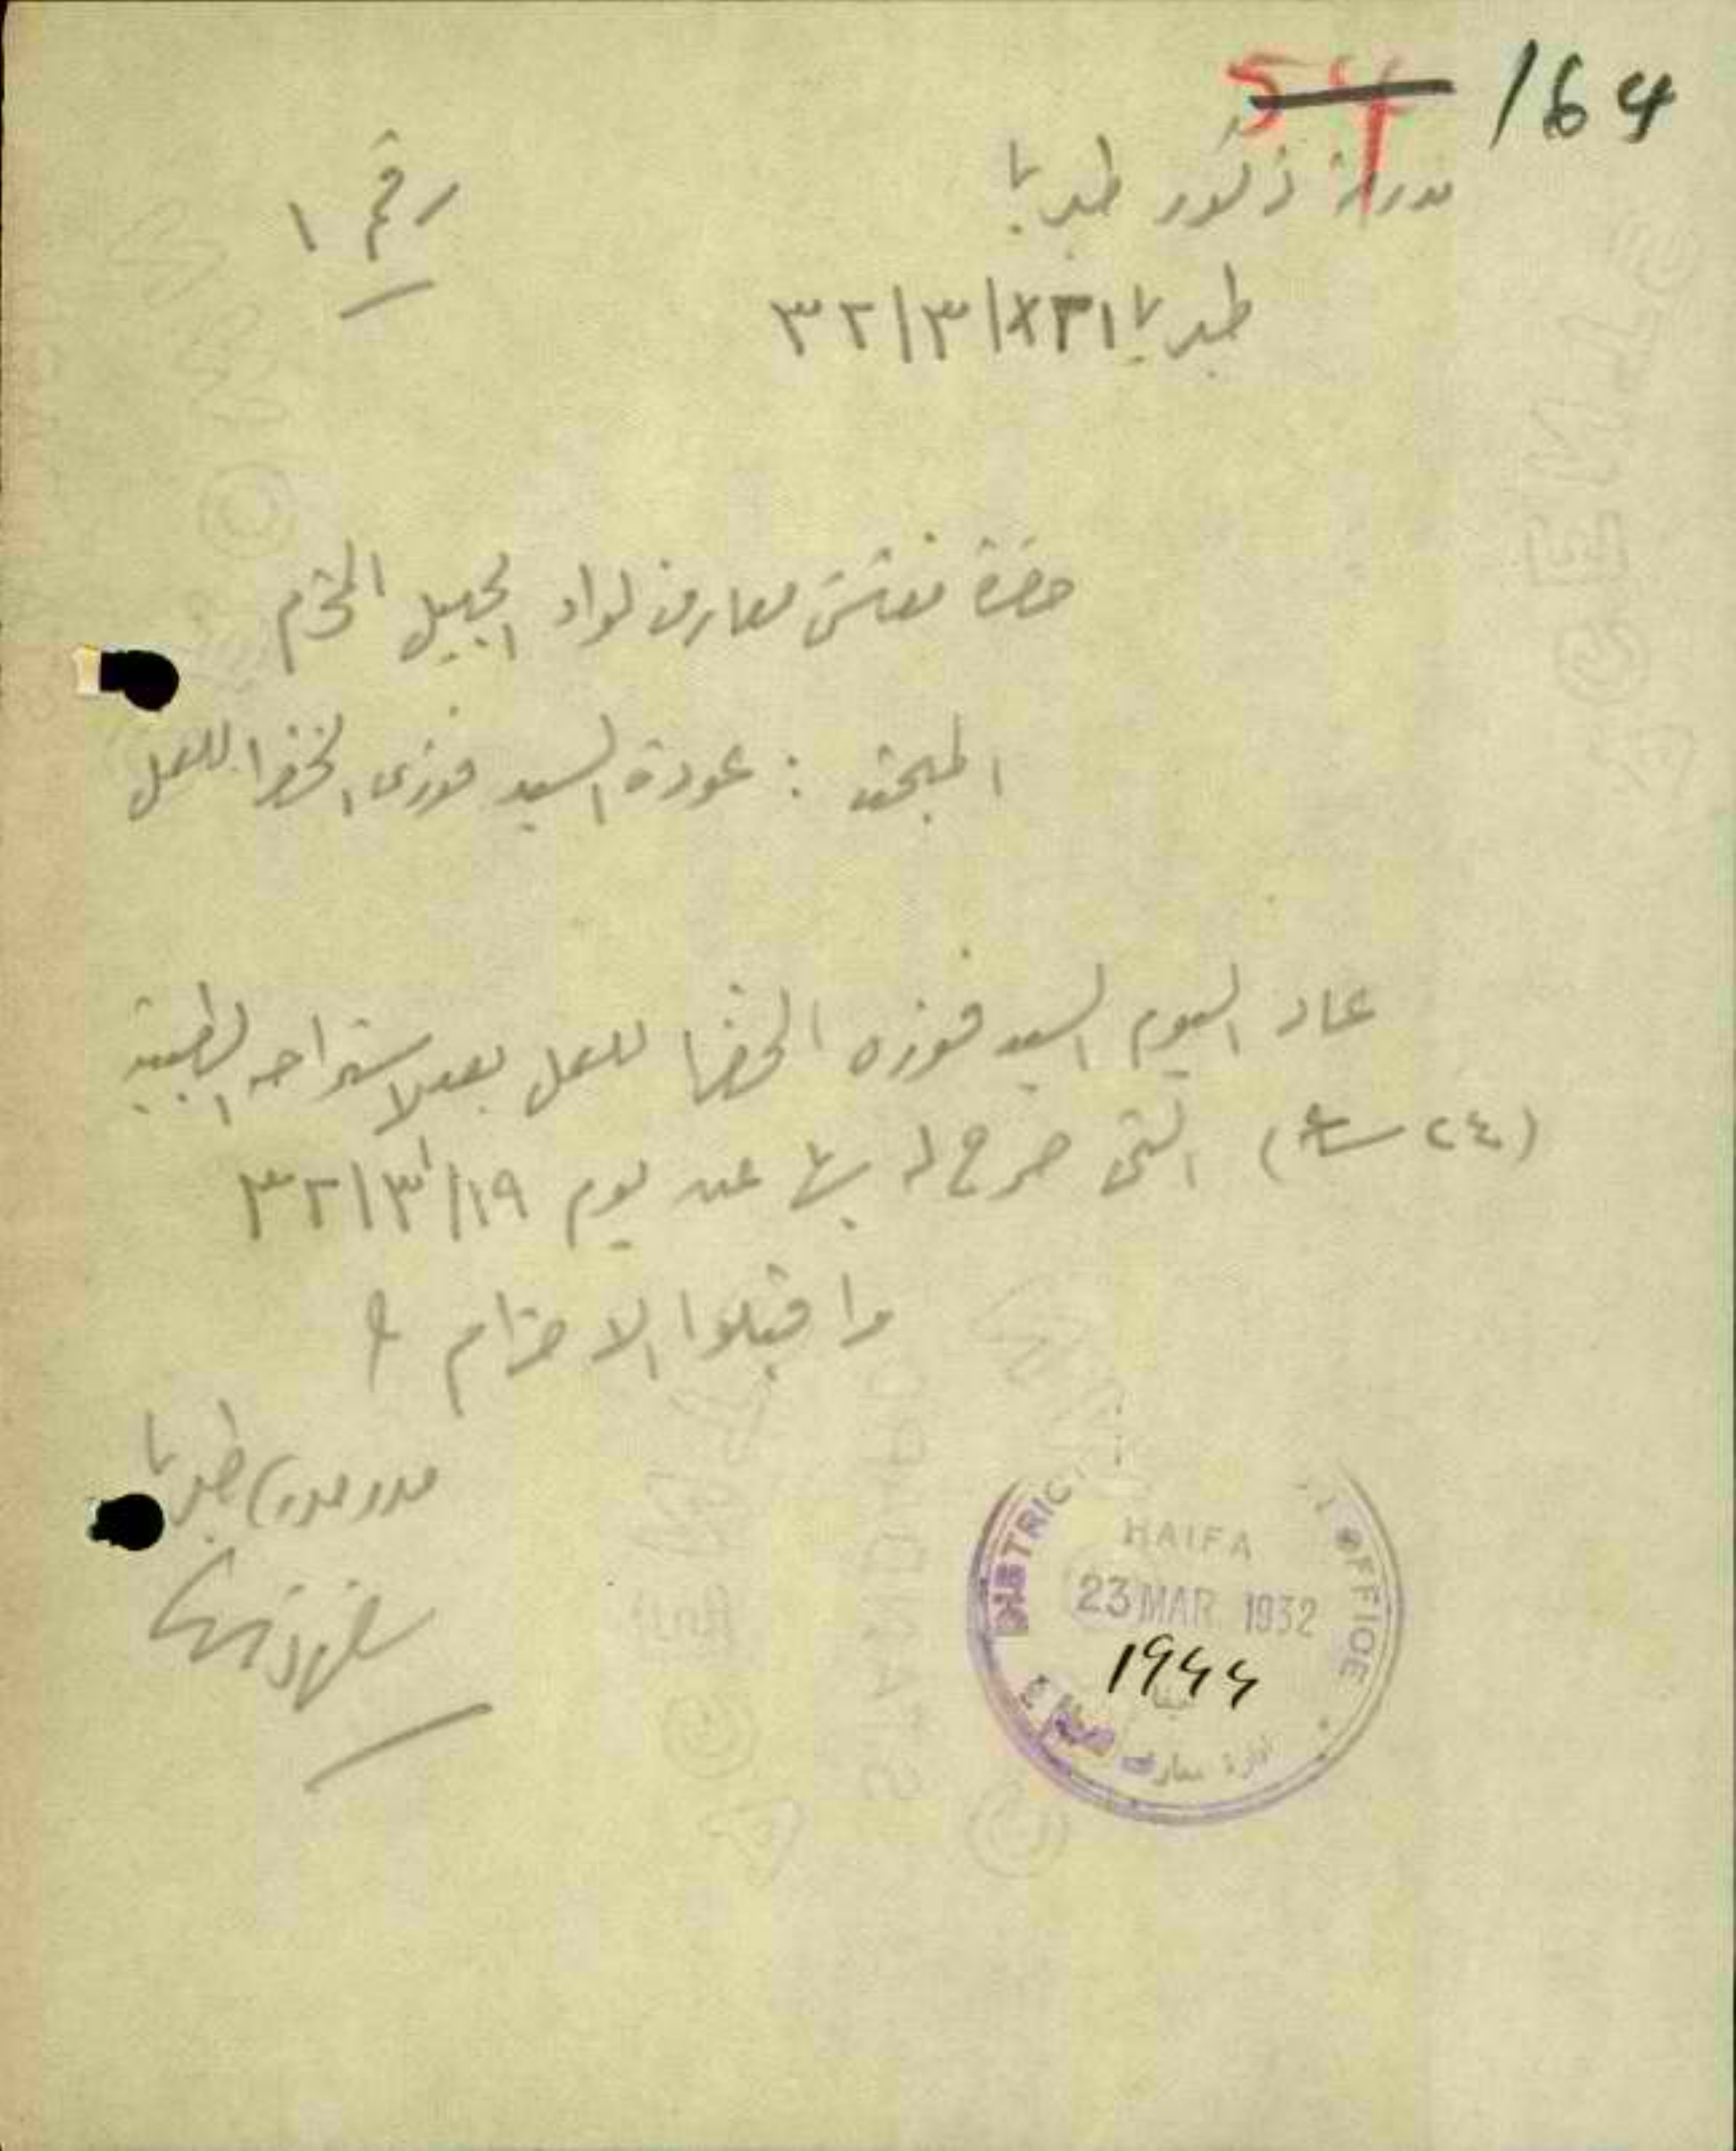 164
مدرسة ذكور طبريا
رقم ١
طبريا ٣٢/٣/٢١
حضرة مفتش معارف لواء الجليل المحترم
المبحث : عودة السيد فوزي الخضرا للعمل
عاد اليوم السيد فوزي الخضرا للعمل بعد الاستراحه الطبية
(٢٤ ساعة) التي صرح له بها عن يوم ١٩/٣/٣٢
واقبلوا الاحترام
مدير مدرسة طبريا
DISTRICT OFFICE
HAIFA
23 MAR 1932
1944
ادارة معارف